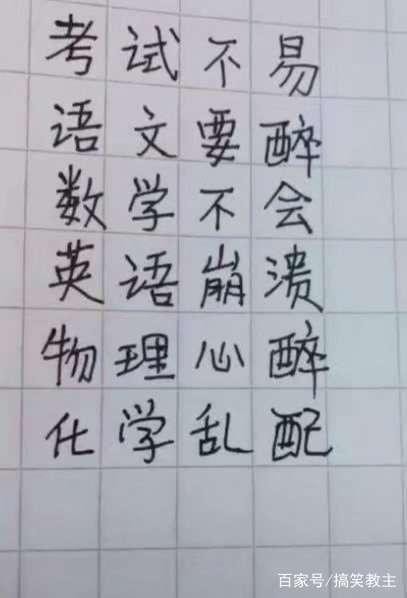 考试不易
语文要醉
数学不会
英语崩溃
物理心醉
化学乱配
百家号/搞笑教主